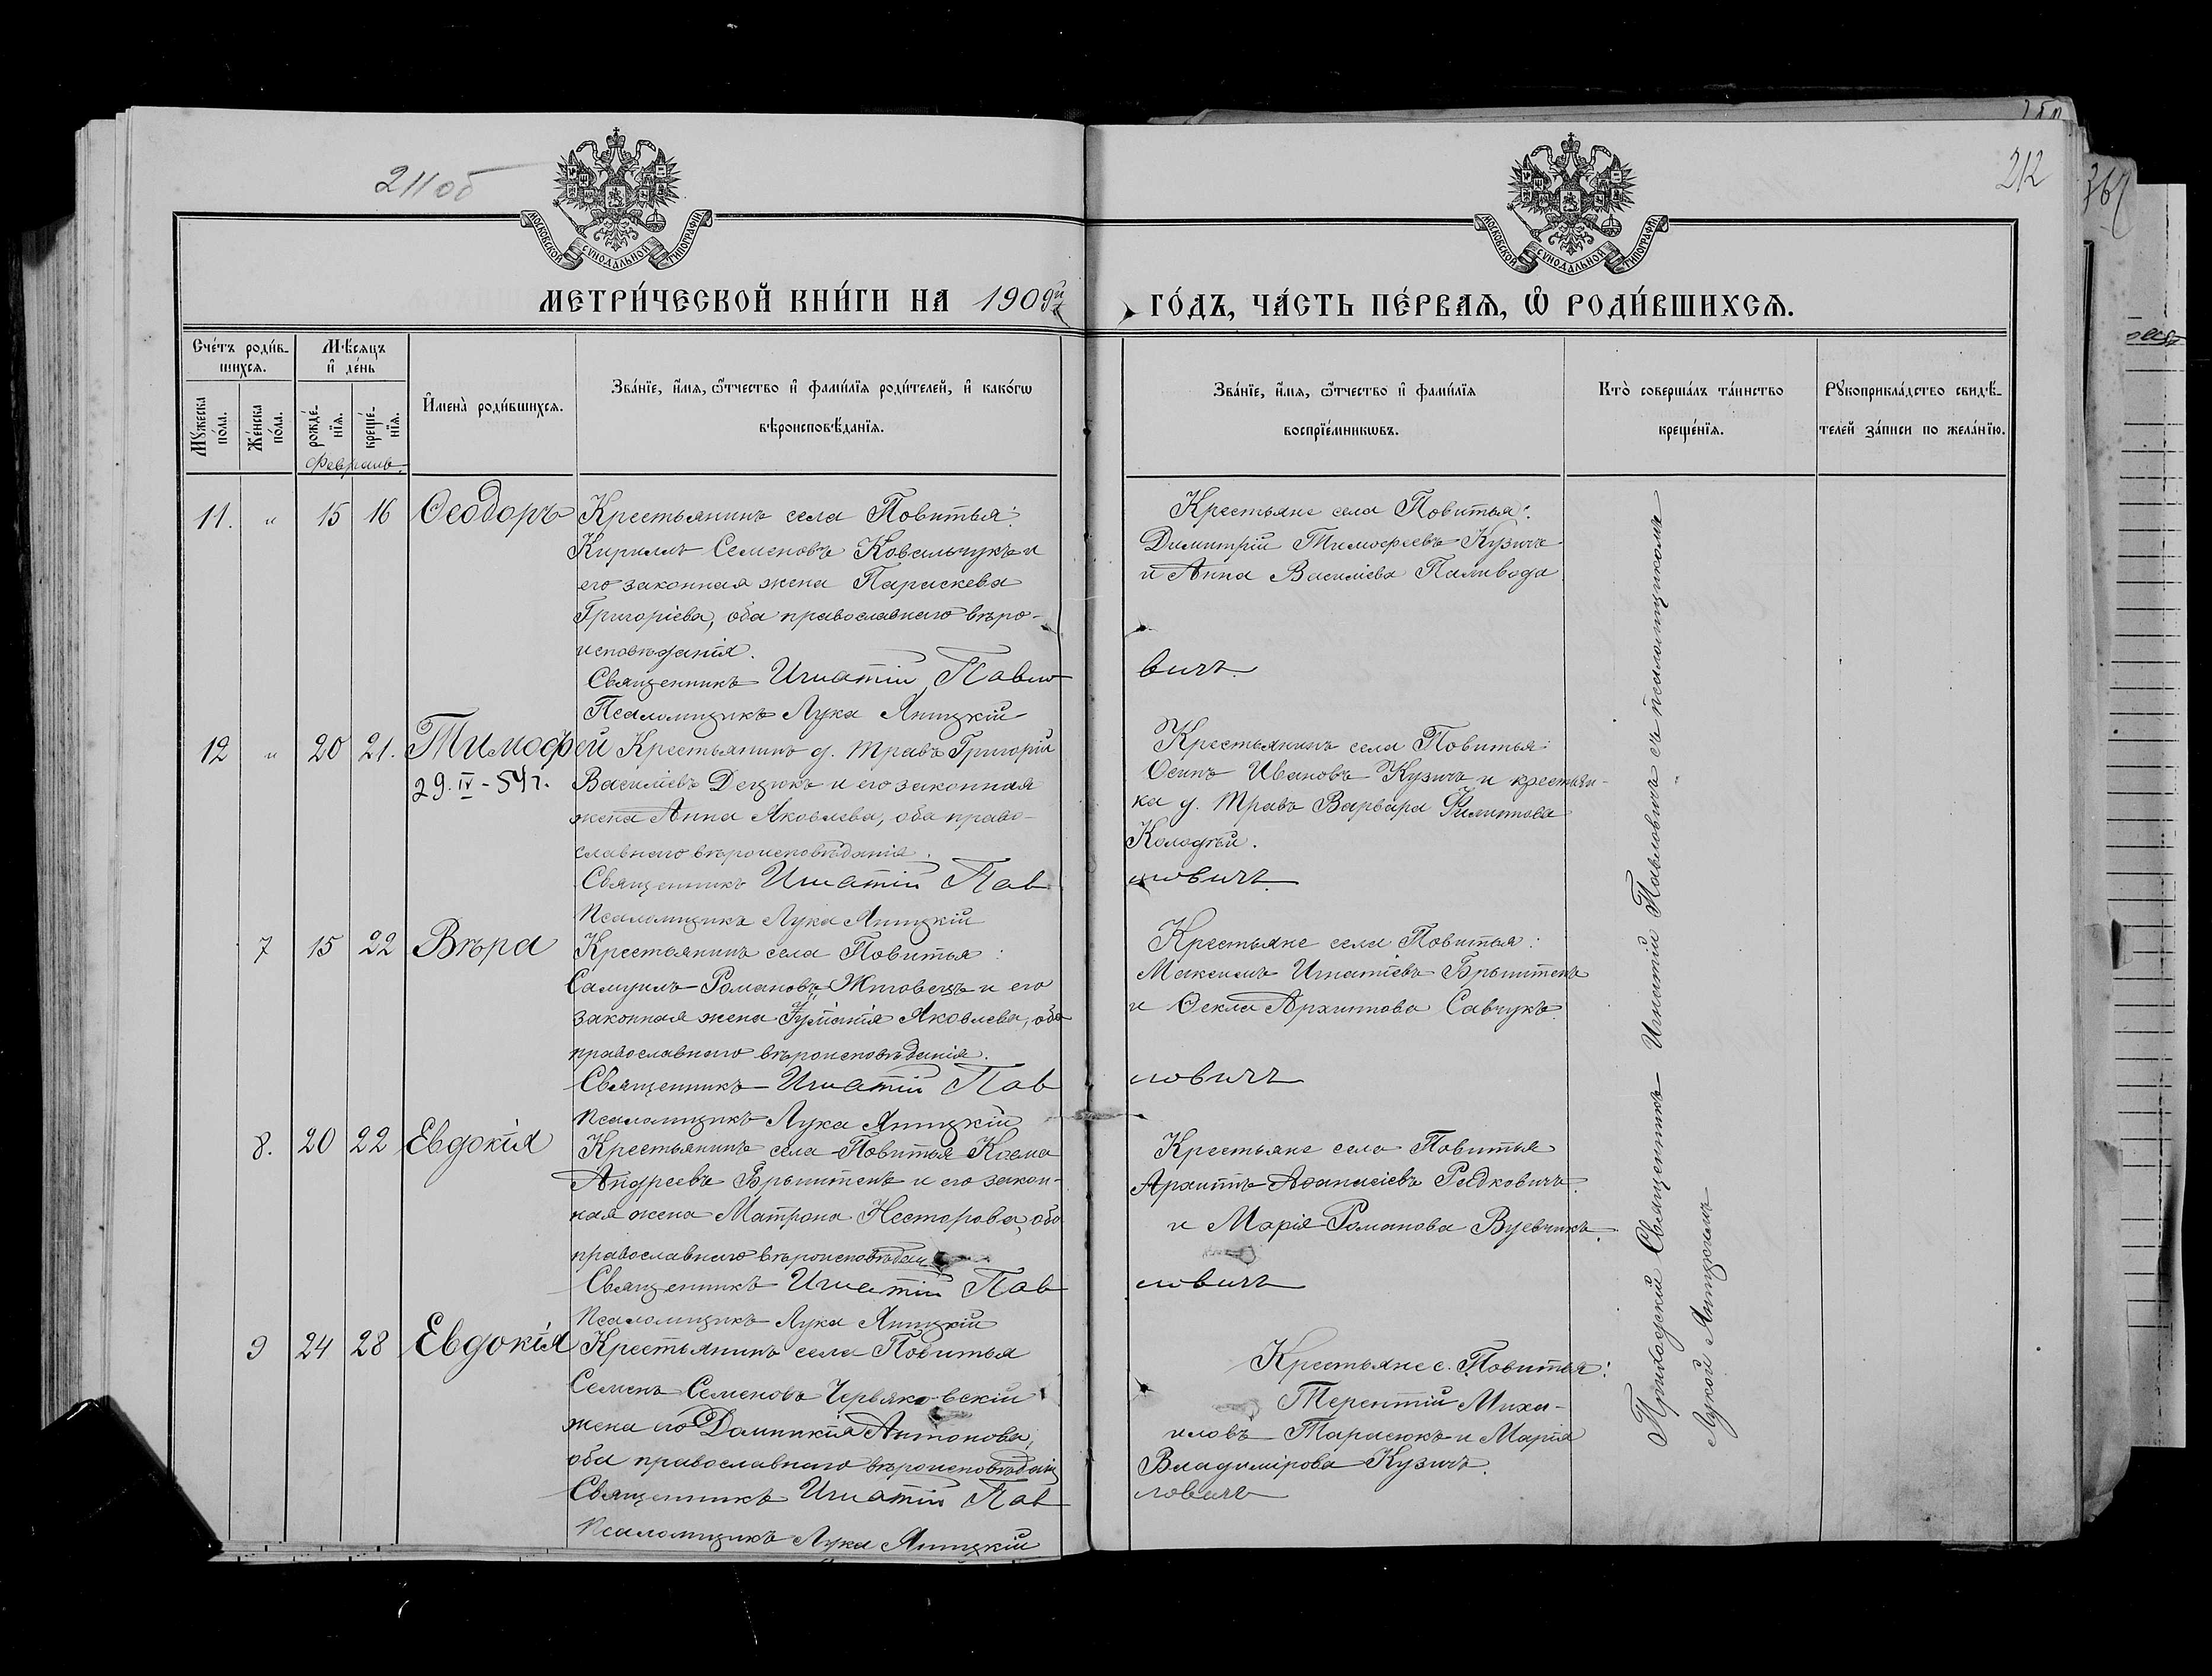 211об
212
367
МОСКОВСКОЙ СУНОДАЛЬНОЙ ТИПОГРАФІИ
МОСКОВСКОЙ СУНОДАЛЬНОЙ ТИПОГРАФІИ
МЕТРИ́ЧЕСКОЙ КНИ́ГИ НА 1909й ГО́ДЪ, ЧА́СТЬ ПЕ́РВАЯ, Ѡ РОДИ́ВШИХСЯ.
Сче́тъ роди́в-
шихся.
Мѣсяцъ
и де́нь
Мужеска
по́ла.
Же́нска
по́ла.
рожде́-
нїя.
креще́-
нїя.
Февраль.
Имена̀ роди́вшихся.
Зва́нїе, и́мя, ѻ́тчество и фами́лїя роди́телей, и како́гѡ
вѣроисповѣ́данїя.
Зва́нїе, и́мя, ѻ́тчество и фами́лїя
воспрїе́мникѡвъ.
Кто̀ соверша́лъ та́инство
креще́нїя.
Рукоприкла́дство свидѣ́-
телей за́писи по жела́нїю.
11. " 15 16 Ѳеодоръ
Крестьянинъ села Повитья:
Кириллъ Семеновъ Ковальчукъ и
его законная жена Параскева
Григоріева, оба православнаго вѣро-
исповѣданія.
Священникъ Игнатій Павло
вичъ
Псаломщикъ Лука Япицкій
Крестьяне села Повитья:
Димитрій Тимоѳеевъ Кузичъ
и Анна Василіева Паливода
12 " 20 21. Тимоѳей
29.IV-54г.
Крестьянинъ д. Травъ Григорій
Василіевъ Децюкъ и его законная
жена Анна Яковлева, оба право-
славнаго вѣроисповѣданія.
Священникъ Игнатій Пав
ловичъ
Псаломщикъ Лука Япицкій
Крестьянинъ села Повитья:
Осипъ Ивановъ Кузичъ и крестьян-
ка д. Травъ Варвара Филиппова
Колодѣй.
7 15 22 Вѣра
Крестьянинъ села Повитья:
Самуилъ Романовъ Жиговецъ и его
законная жена Яковлева, оба
православнаго вѣроисповѣданія.
Священникъ Игнатій Пав
ловичъ
Псаломщикъ Лука Япицкій
Крестьяне села Повитья:
Максимъ Игнатіевъ Брынтенъ
и Ѳекла Архиппова Савчукъ
8. 20 22 Евдокія
Крестьянинъ села Повитья Косма
Андреевъ Брынтенъ и его закон-
ная жена Матрона Несторова, оба
православнаго вѣроисповѣдан
Священникъ Игнатій Пав
ловичъ
Псаломщикъ Лука Япицкій
Крестьяне села Повитья
Архиппъ Аѳанасіевъ Редковичъ
и Марія Романова Вуевчикъ.
9 24 28 Евдокія
Крестьянинъ села Повитья
Семенъ Семеновъ Червяковскій
жена его Домникія Антонова,
оба православнаго вѣроисповѣдан
Священникъ Игнатій Пав
ловичъ
Псаломщикъ Лука Япицкій
Крестьяне с. Повитья:
Терентій Миха-
иловъ Тарасюкъ и Марія
Владимірова Кузичъ.
Приходскій Священникъ Игнатій Павловичъ съ псаломщикомъ
Лукой Япицкимъ